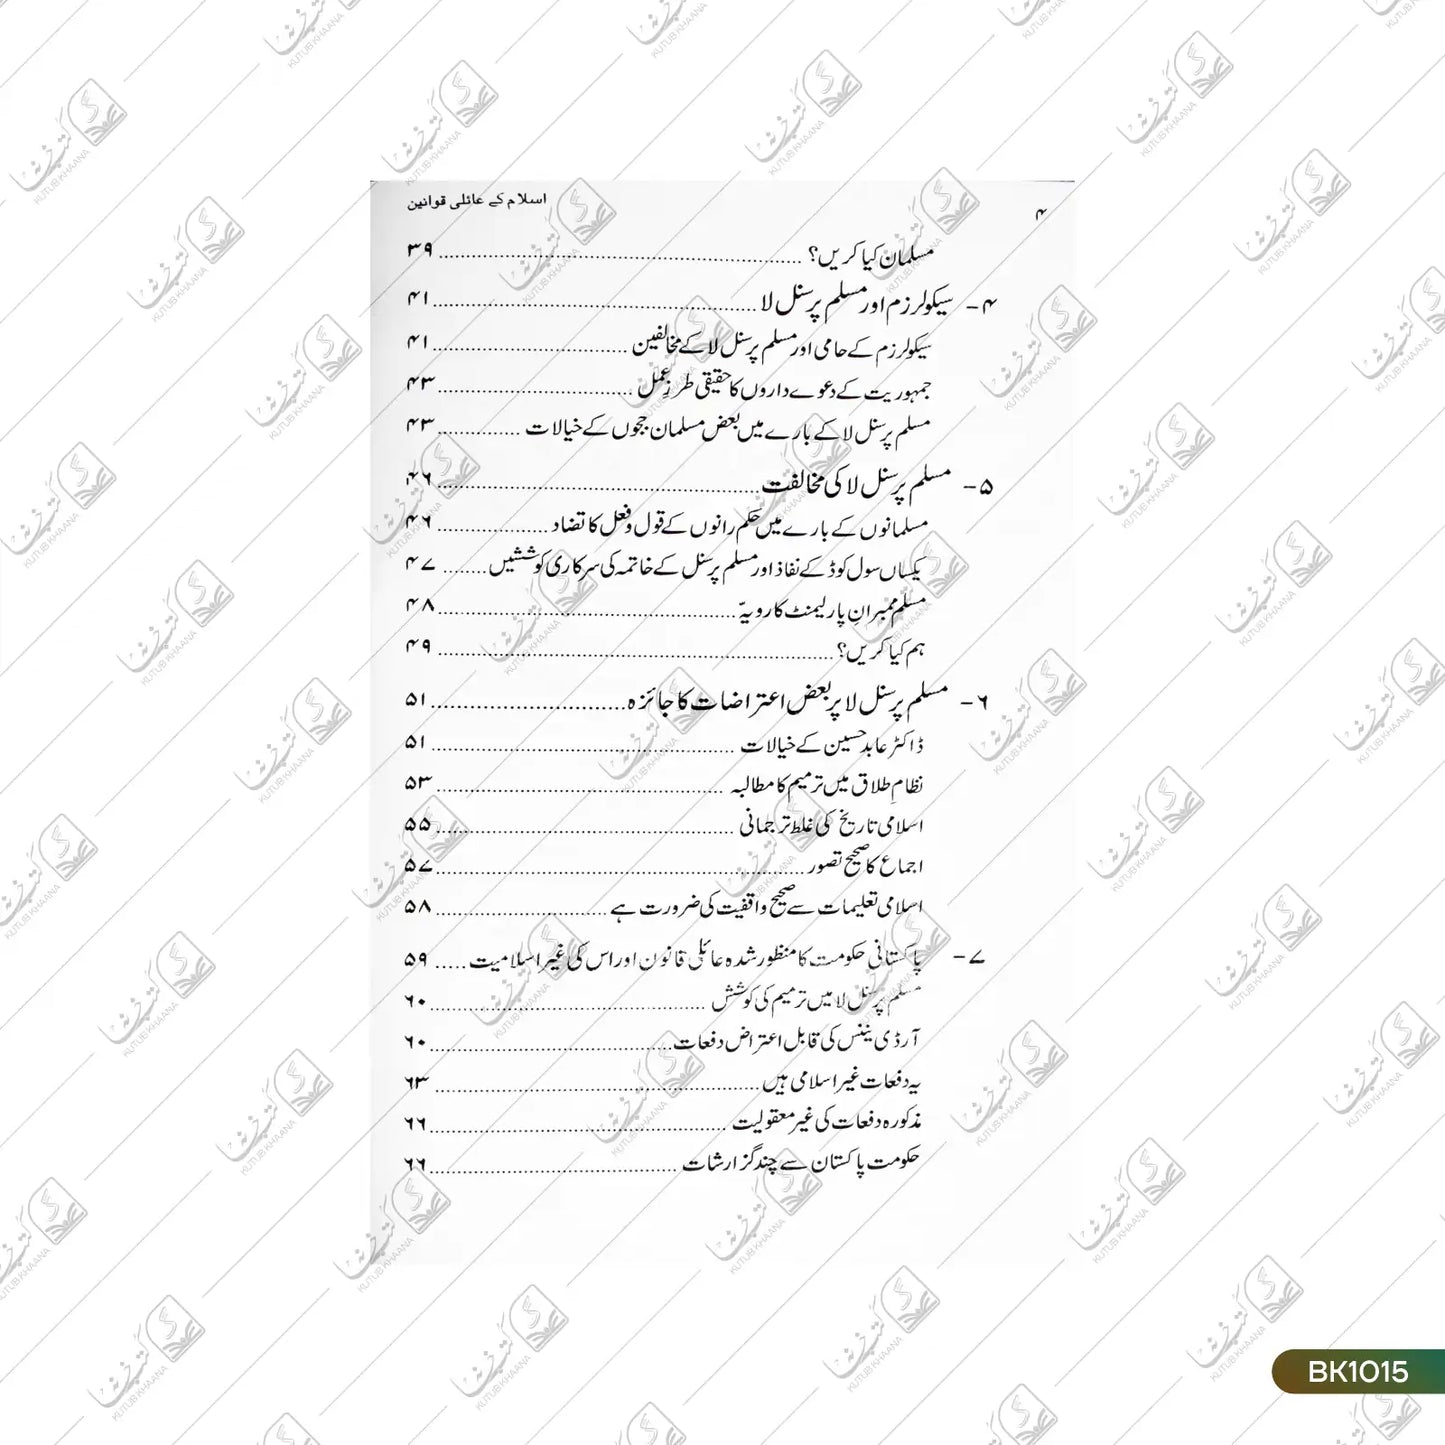 ۴
اسلام کے عائلی قوانین
مسلمان کیا کریں؟ ۳۹
۴- سیکولرزم اور مسلم پرسنل لا ۴۱
سیکولرزم کے حامی اور مسلم پرسنل لا کے مخالفین ۴۱
جمہوریت کے دعوے داروں کا حقیقی طرزِ عمل ۴۳
مسلم پرسنل لا کے بارے میں بعض مسلمان ججوں کے خیالات ۴۳
۵- مسلم پرسنل لا کی مخالفت ۴۶
مسلمانوں کے بارے میں حکم رانوں کے قول و فعل کا تضاد ۴۶
یکساں سول کوڈ کے نفاذ اور مسلم پرسنل کے خاتمہ کی سرکاری کوششیں ۴۷
مسلم ممبرانِ پارلیمنٹ کا رویہّ ۴۸
ہم کیا کریں؟ ۴۹
۶- مسلم پرسنل لا پر بعض اعتراضات کا جائزہ ۵۱
ڈاکٹر عابد حسین کے خیالات ۵۱
نظامِ طلاق میں ترمیم کا مطالبہ ۵۳
اسلامی تاریخ کی غلط ترجمانی ۵۵
اجماع کا صحیح تصور ۵۷
اسلامی تعلیمات سے صحیح واقفیت کی ضرورت ہے ۵۸
۷- پاکستانی حکومت کا منظور شدہ عائلی قانون اور اس کی غیر اسلامیت ۵۹
مسلم پرسنل لا میں ترمیم کی کوشش ۶۰
آرڈی ننس کی قابل اعتراض دفعات ۶۰
یہ دفعات غیر اسلامی ہیں ۶۳
مذکورہ دفعات کی غیر معقولیت ۶۶
حکومت پاکستان سے چند گزارشات ۶۶
کتب خانہ
KUTUB KHAANA
BK1015